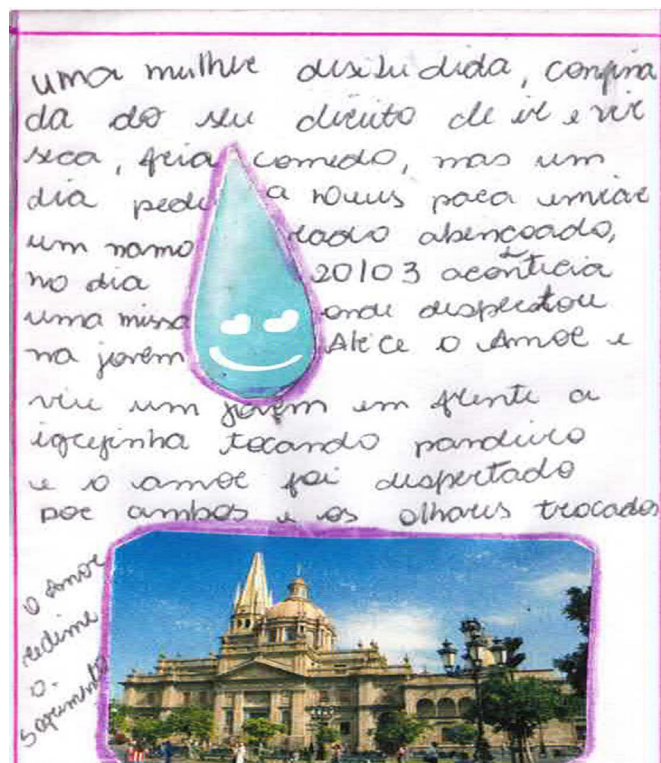 uma mulher desiludida, confina
da do seu direito de ir e vir
seca, fria comedo, mas um
dia pediu a Deus para enviar
um namo rado abençoado,
no dia 20/03 acontecia
uma missa onde despertou
na jovem Alice o Amor e
viu um jovem em frente a
igrejinha tocando pandeiro
e o amor foi despertado
por ambos e os olhares trocados
o Amor
redime
o.
sofrimento